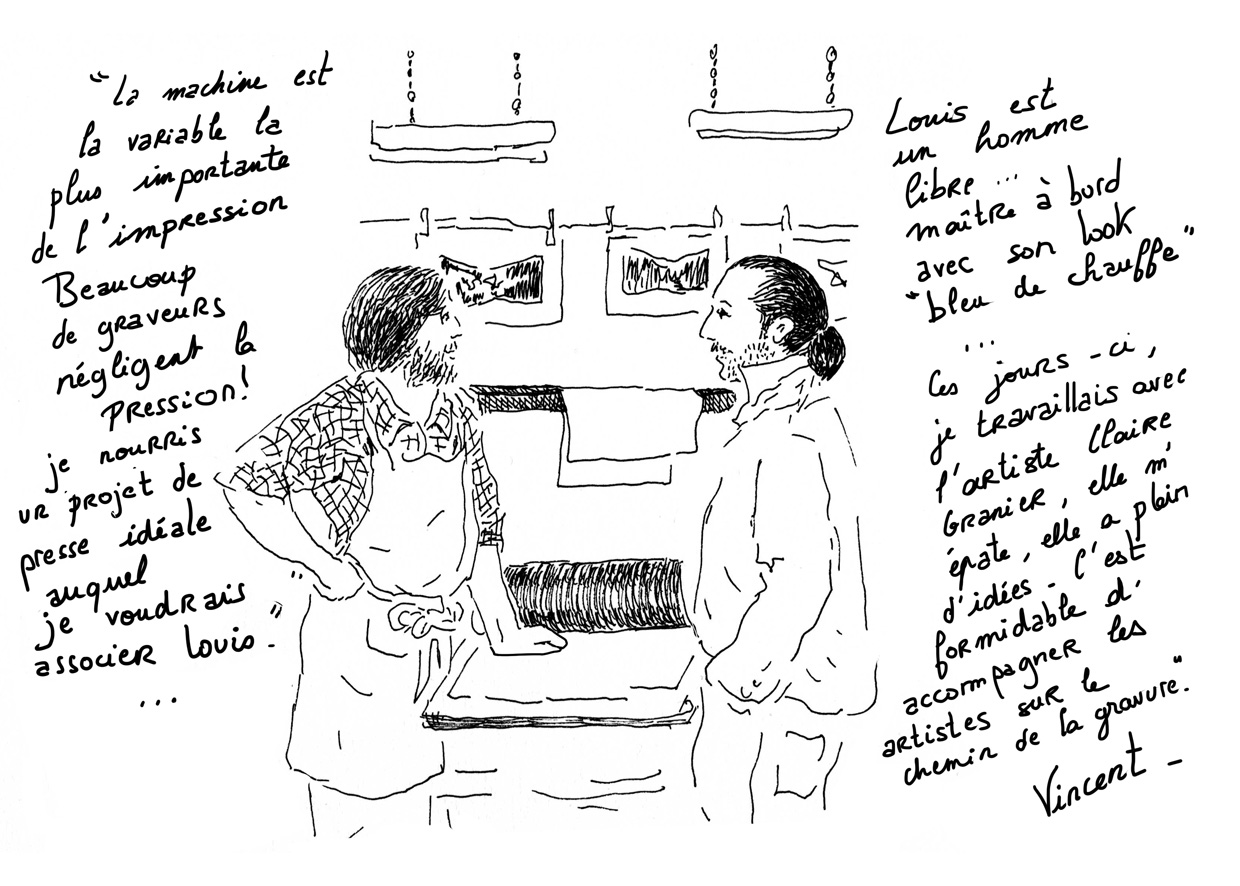 “La machine est
la variable la
plus importante
de l'impression
Beaucoup
de graveurs
négligent la
pression!
je nourris
un projet de
presse idéale
auquel
je voudrais "
associer Louis. "
...
Louis est
un homme
libre ...
maître à bord
avec son look
"bleu de chauffe"
...
Ces jours-ci,
je travaillais avec
l'artiste Claire
Granier, elle m'
épate, elle a plein
d'idées. C'est
formidable d'
accompagner les
artistes sur le
chemin de la gravure."
Vincent -